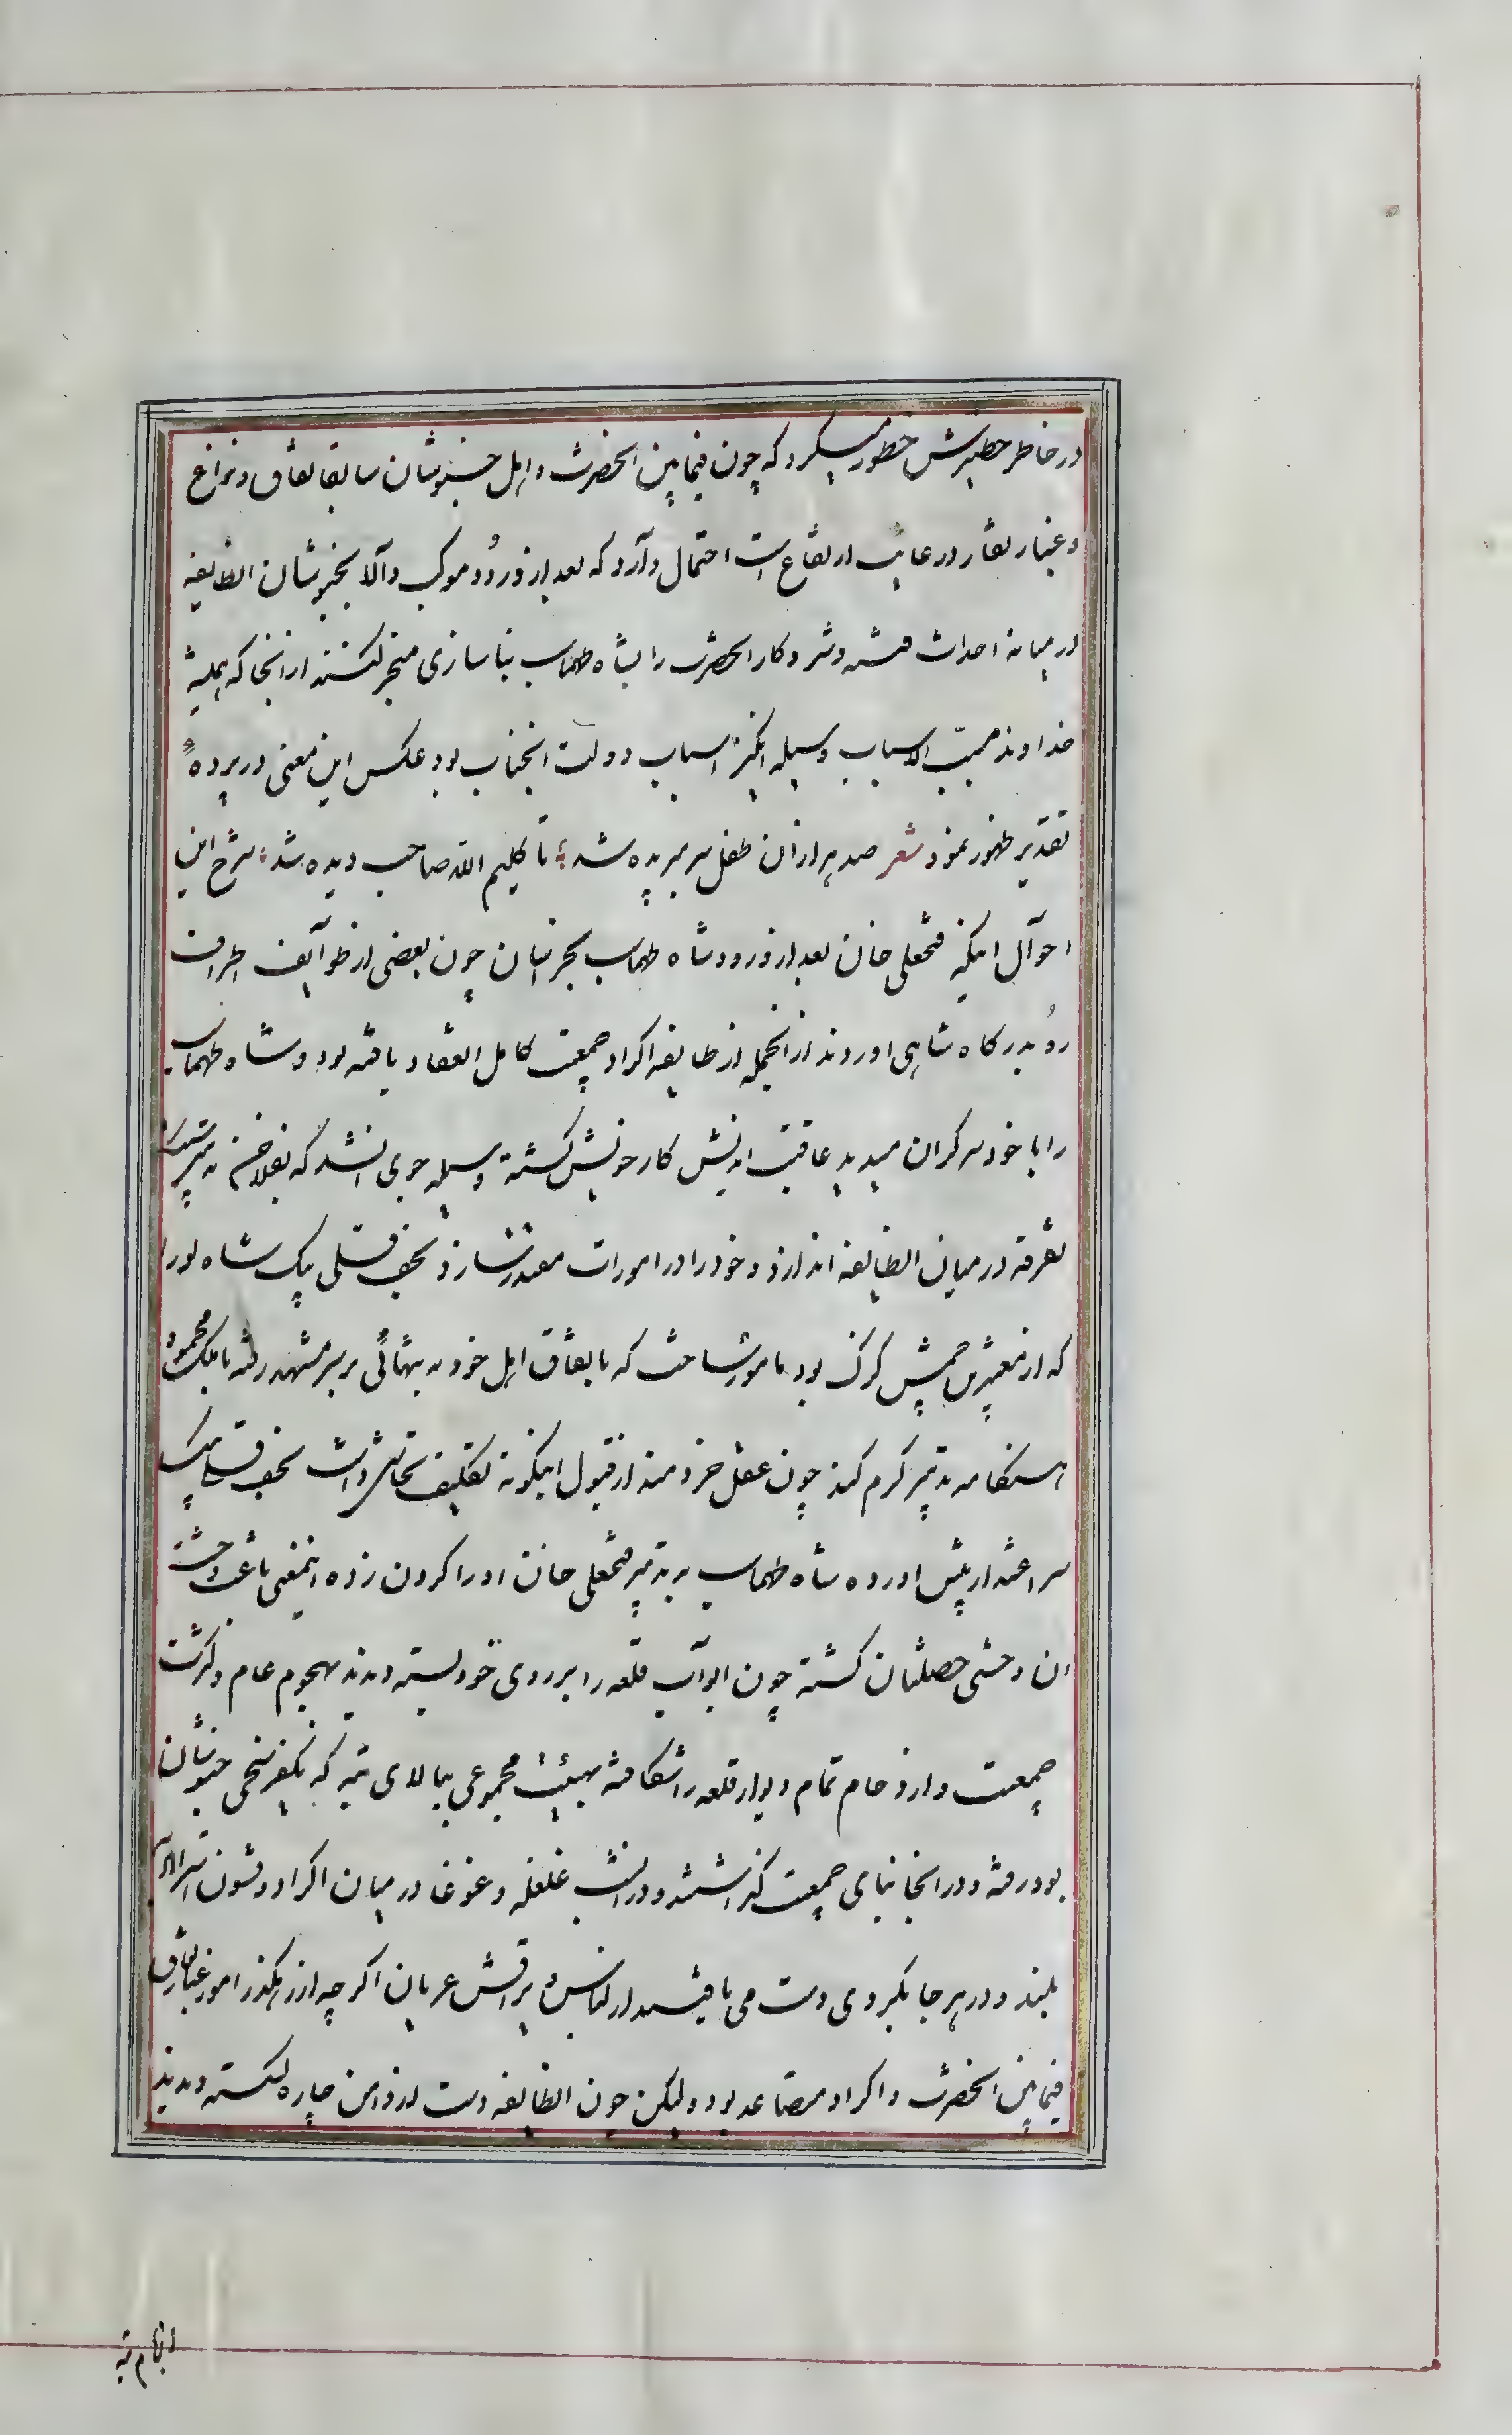 در خاطر خطیرش خطور میکرد که چون فیمابین انحضرت و اهل خبوشان سابقا نفاق و نزاع
و غبار نقار در غایت ارتفاع است احتمال دارد که بعد از ورُود موکب والا بخبوشان انطایفه
در میانه احداث فتنه و شر و کار انحضرت را بشاه طهماسب بناسازی منجر کنند از انجا که همیشه
خداوند مسبّب الاسباب وسیله انگیز اسباب دولت انجناب بود عکس این معنی در پردهٔ
تقدیر ظهور نمود شعر صد هزاران طفل سر ببریده شد تا کلیم الله صاحب دیده شد شرح این
احوال اینکه فتحعلی خان بعد از ورود شاه طهماسب بخراسان چون بعضی از طوایف اطراف
رُو بدرکاه شاهی اوردند از انجمله از طایفه اکراد جمعیت کامل انعقاد یافته بود و شاه طهماسب
را با خود سرکران میدید عاقبت اندیش کار خویش کشته وسیله جوی انشد که بفلاخن تدبیر سنک
تفرقه در میان انطایفه اندازد و خود را در امورات مقتدر سازد نجف قلی بیک شاد لو را
که از معتبرین چمشکزک بود مامور ساخت که باتفاق اهل خود به تنهائی بر سر مشهد رفته با ملک محمود
هنکامه تدبیر کرم کند چون عقل خردمند از قبول اینکونه تکلیف تحاشی داشت نجف قلی بیک
سر اعتذار پیش اورده شاه طهماسب بر تدبیر فتحعلی خان او را کردن زده اینمعنی باعث وحشت
ان وحشی خصلتان کشته چون ابواب قلعه را بر روی خود بسته دیدند بهجوم عام و کثرت
جمعیت و ازدحام تمام دیوار قلعه را شکافته بهیئت مجموعی ببالای تپه که یکفرسخی خبوشان
بود رفته و در انجا بنای جمعیت کذاشتند و در انشب غلغله و غوغا در میان اکراد و قشون استراباد
بلند و در هر جا بکردی دست می یافتند از لباس و یراقش عریان اکر چه از رهکذر امور غبار نفاق
فیمابین انحضرت و اکراد متصاعد بود ولیکن چون انطایفه دست از دامن چاره کسسته دیدند